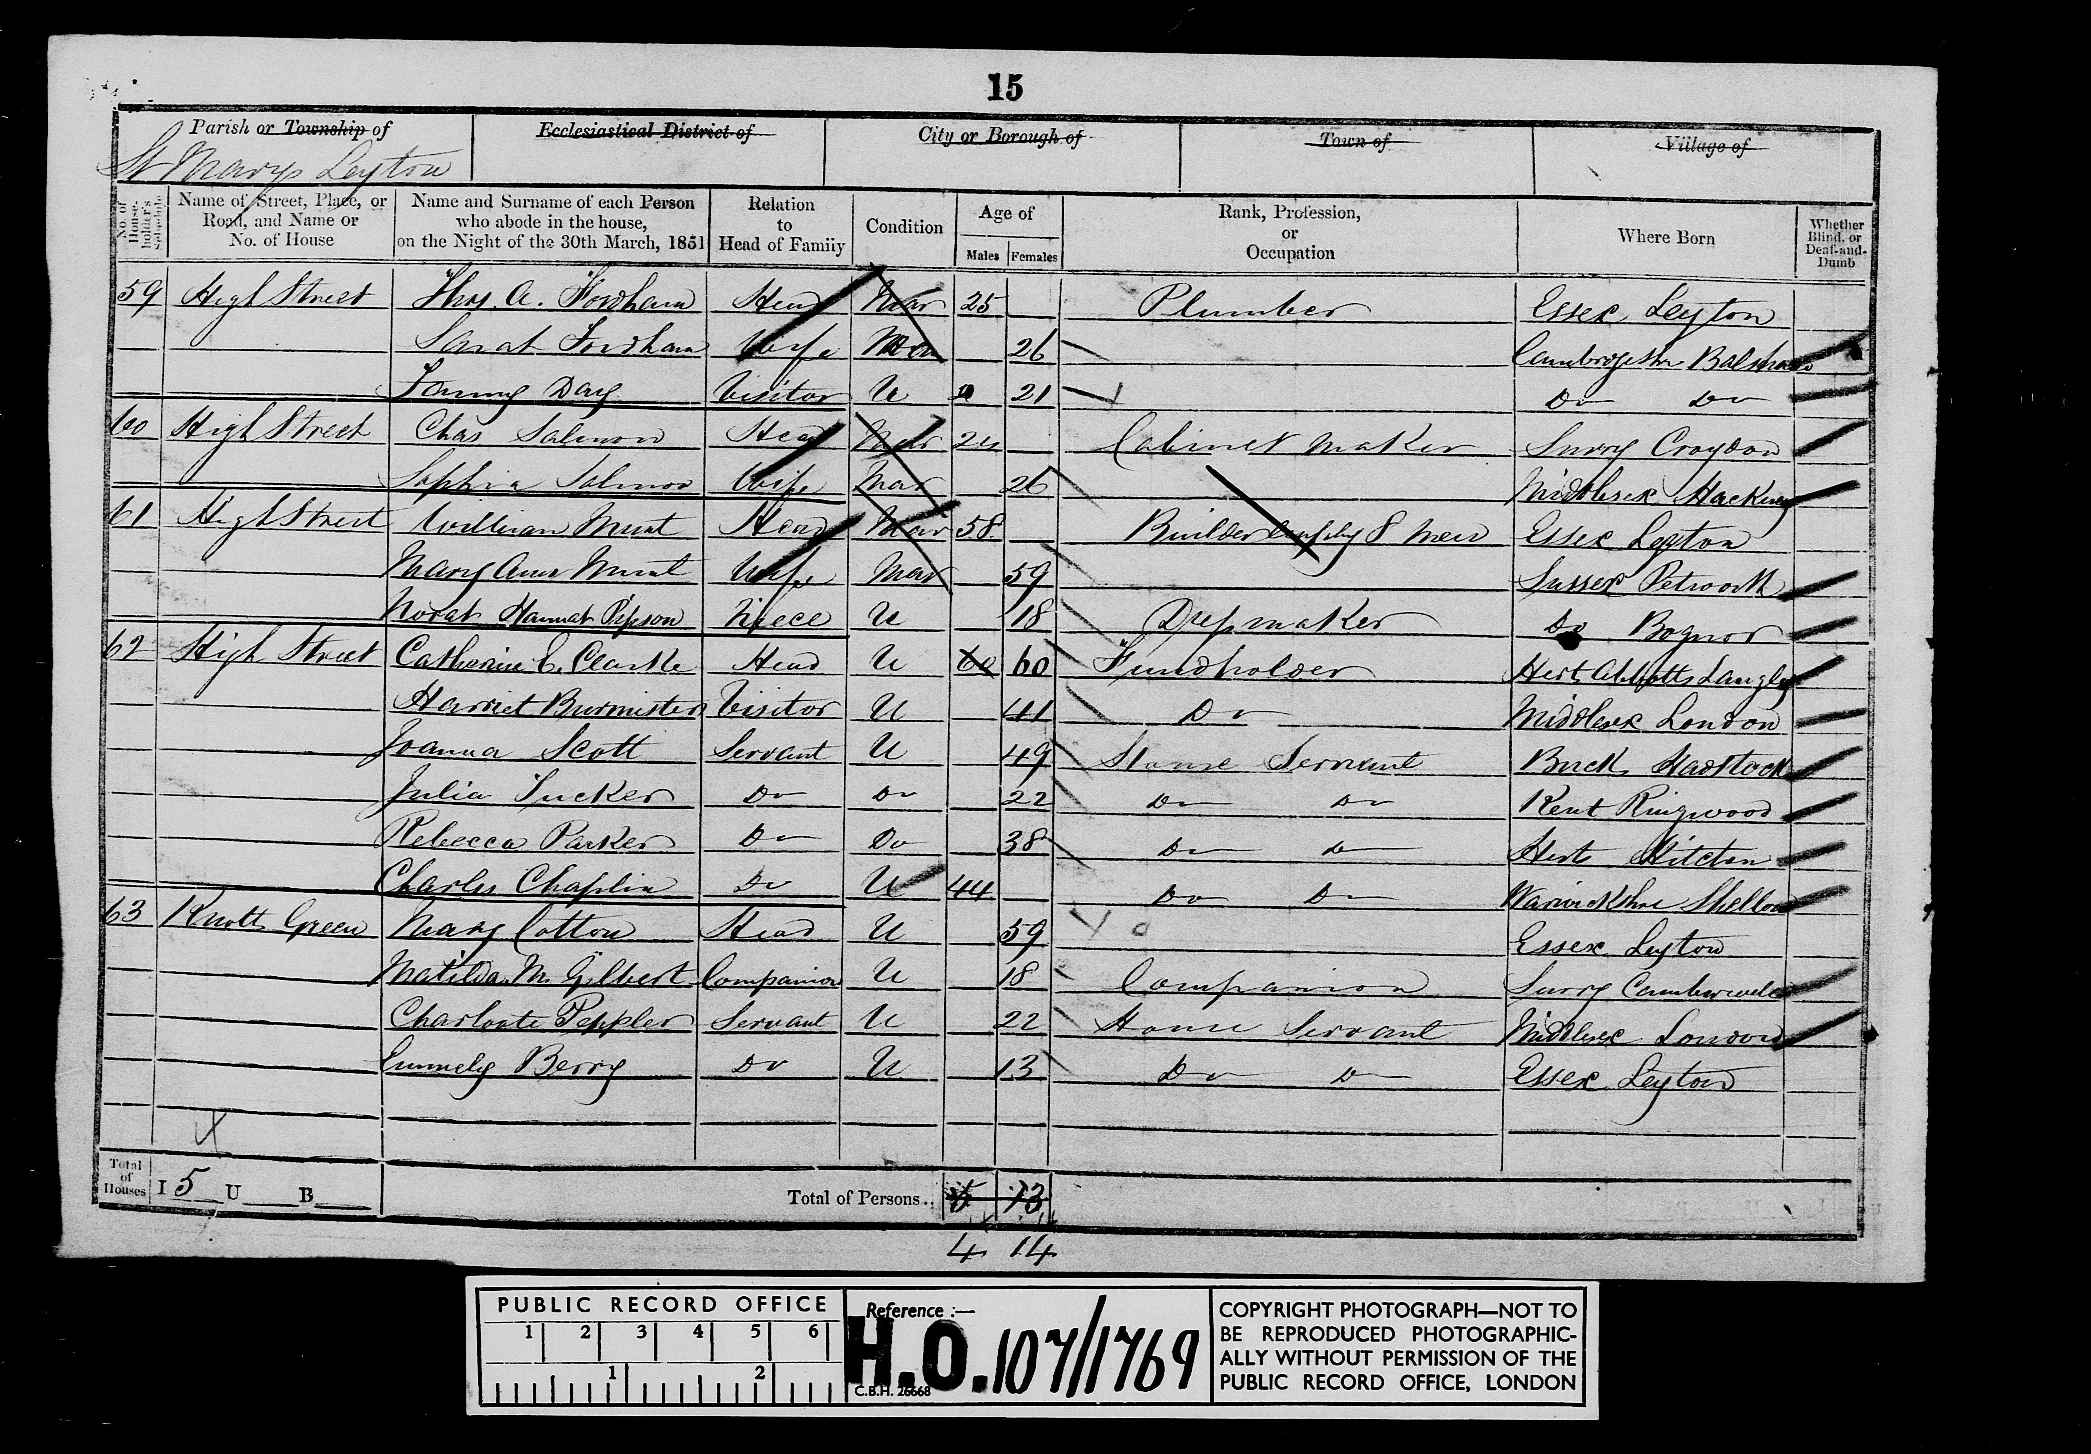 15
Parish or Township of
Ecclesiastical District of
City or Borough of
Town of
Village of
St Marys Leyton
No. of House-holder's Schedule
Name of Street, Place, or Road, and Name or No. of House
Name and Surname of each Person who abode in the house, on the Night of the 30th March, 1851
Relation to Head of Family
Condition
Age of
Males Females
Rank, Profession, or Occupation
Where Born
Whether Blind, or Deaf-and-Dumb
59 High Street Thos. A. Fordham Head Mar 25 Plumber Essex Leyton
Sarah Fordham Wife Mar 26 Cambridgeshr Balsham
Fanny Day Visitor U 21 Do Do
60 High Street Chas Salmon Head Mar 24 Cabinet Maker Surry Croydon
Sophia Salmon Wife Mar 26 Middlesex Hackney
61 High Street William Munt Head Mar 58 Builder 8 men Essex Leyton
Mary Ann Munt Wife Mar 59 Sussex Petworth
Norah Hannah Pipson Niece U 18 Dressmaker Do Bognor
62 High Street Catherine E. Clarke Head U 60 60 Fundholder Hert Abbotts Langley
Harriet Burmister Visitor U 41 Do Middlesex London
Joanna Scott Servant U 49 House Servant Buck Hadstock
Julia Tucker Do Do 22 Do Do Kent Ringwood
Rebecca Parker Do Do 38 Do Do Herts Hitchen
Charles Chaplin Do U 44 Do Do Warwickshire
63 Knotts Green Mary Cotton Head U 59 Essex Leyton
Matilda M. Gilbert Companion U 18 Companion Surry Camberwell
Charloate Peppler Servant U 22 House Servant Middlesex London
Emmely Berry Do U 13 Do Do Essex Leyton
Total of Houses I 5 U B Total of Persons.. 5 13
4 14
PUBLIC RECORD OFFICE
1 2 3 4 5 6
1 2
Reference :—
H.O. 107/1769
C.B.H. 26668
COPYRIGHT PHOTOGRAPH—NOT TO
BE REPRODUCED PHOTOGRAPHIC-
ALLY WITHOUT PERMISSION OF THE
PUBLIC RECORD OFFICE, LONDON